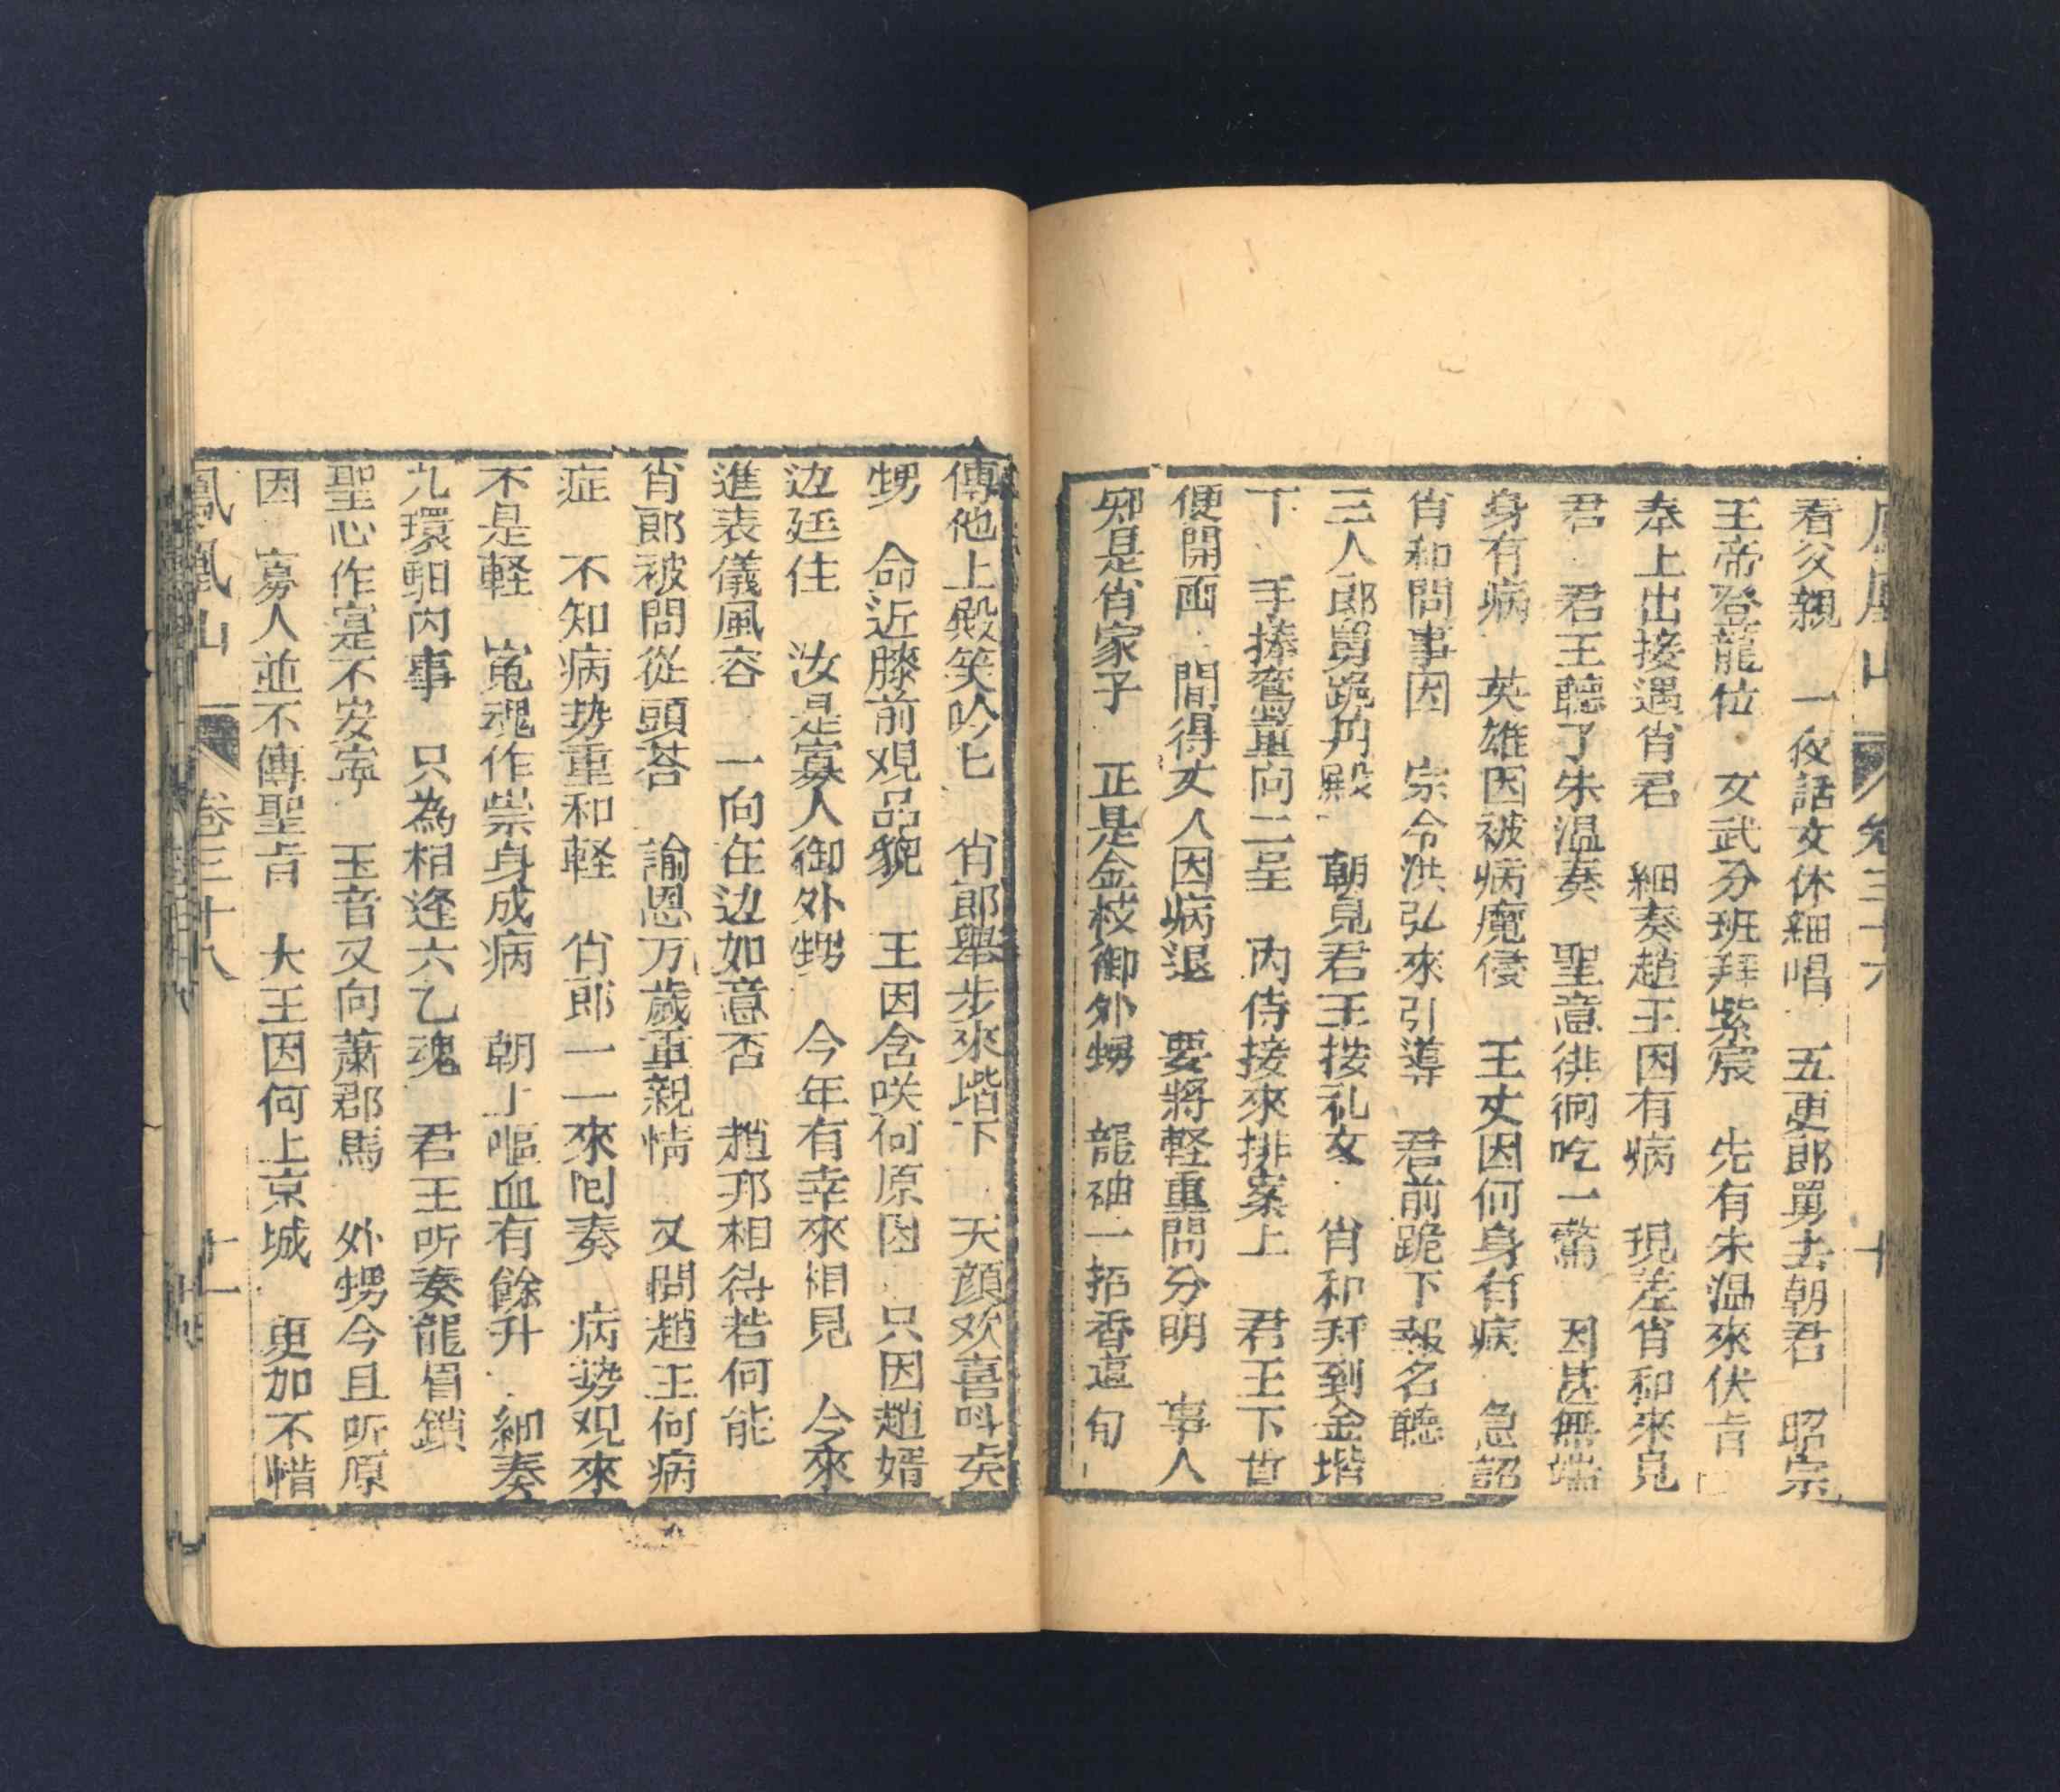 鳳凰山 卷三十六 十
看父親 一夜話文休細唱 五更郎舅去朝君 昭宗
王帝登龍位 文武分班拜紫宸 先有朱温來伏㫖
奉上出接遇肖君 細奏趙王因有病 現差肖和來見
君 君王聽了朱温奏 聖意徘徊吃一驚 因甚無端
身有病 英雄因被病魔侵 王丈因何身有病 急詔
肖和問事因 宗令洪弘來引導 君前跪下報名聽
三人郎舅跪丹殿 朝見君王按礼文 肖和拜到金堦
下 手捧鸞董向二呈 內侍接來排案上 君王下世
便開函 聞得丈人因病退 要將軽重問分明 事人
卵是肖家子 正是金枝御外甥 龍袖一招香這旬
傳他上殿笑吟匕 肖郎舉步來堦下 天顔欢喜呌矣
甥 命近膝前观品貌 王因含咲何原因 只因趙婿
边廷住 汝是寡人御外甥 今年有幸來相見 今來
進表儀風容 一向在边如意否 趙邦相待若何能
肖郎被問從頭荅 諭恩万歲重親情 又問趙王何病
症 不知病势重和軽 肖郎一一來囘奏 病势观來
不是軽 寃魂作祟身成病 朝上嘔血有餘升 細奏
九環馹內事 只為相逢六乙魂 君王听奏龍眉鎖
聖心作寔不安寧 玉音又向蕭郡馬 外甥今且听原
因 寡人並不傳聖㫖 大王因何上京城 更加不惜
鳳凰山 卷三十八 十一